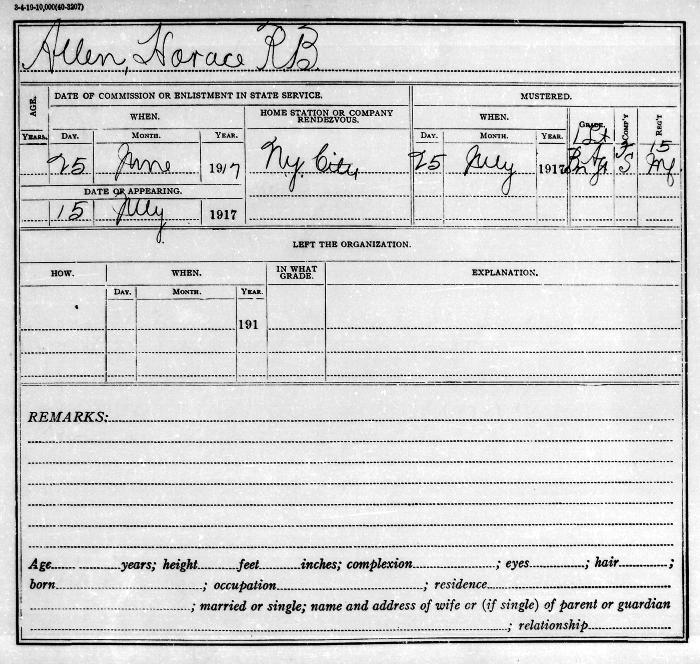 3-4-19-10,000(40-3207)
Allen, Horace R.B.
AGE. DATE OF COMMISSION OR ENLISTMENT IN STATE SERVICE. MUSTERED.
WHEN. HOME STATION OR COMPANY RENDEZVOUS. WHEN. GRADE. COMP'Y REG'T
YEARS. DAY. MONTH. YEAR. DAY. MONTH. YEAR. 1st F 15
25 June 1917 N.y. City 25 July 1917 S Inf.
DATE OF APPEARING.
15 July 1917
LEFT THE ORGANIZATION.
HOW. WHEN. IN WHAT GRADE. EXPLANATION.
DAY. MONTH. YEAR.
191
REMARKS:
Age years; height feet inches; complexion ; eyes ; hair ;
born ; occupation ; residence
; married or single; name and address of wife or (if single) of parent or guardian
; relationship